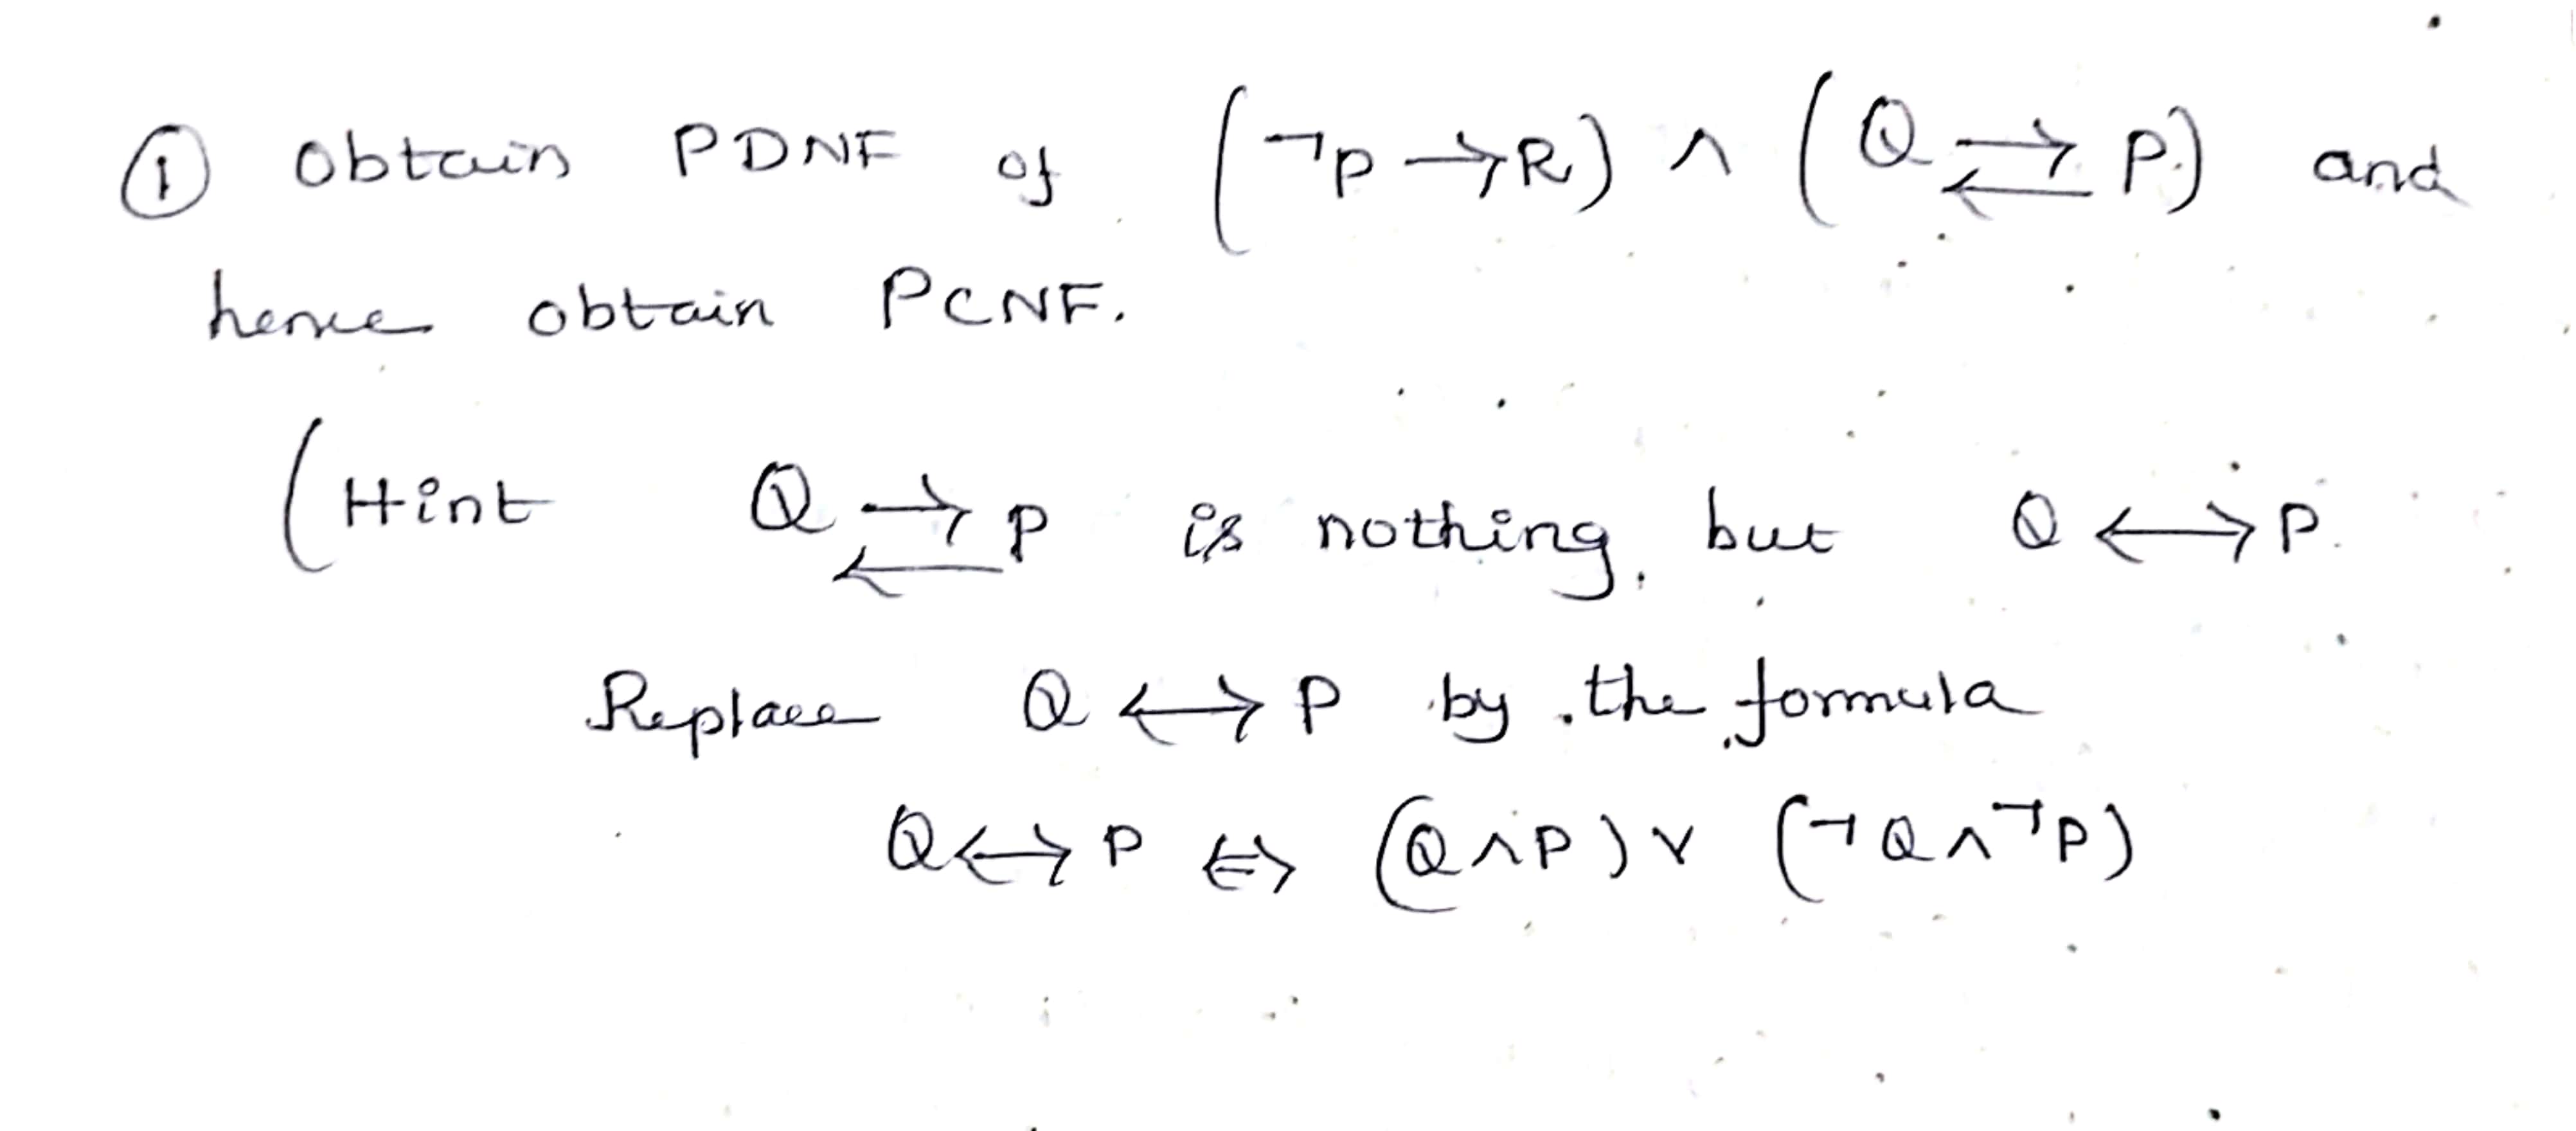 ① Obtain PDNF of (¬P → R) ∧ (Q ⇄ P) and
hence obtain PCNF.
(Hint Q ⇄ P is nothing but Q ↔ P.
Replace Q ↔ P by the formula
Q ↔ P ⇔ (Q ∧ P) ∨ (¬Q ∧ ¬P)